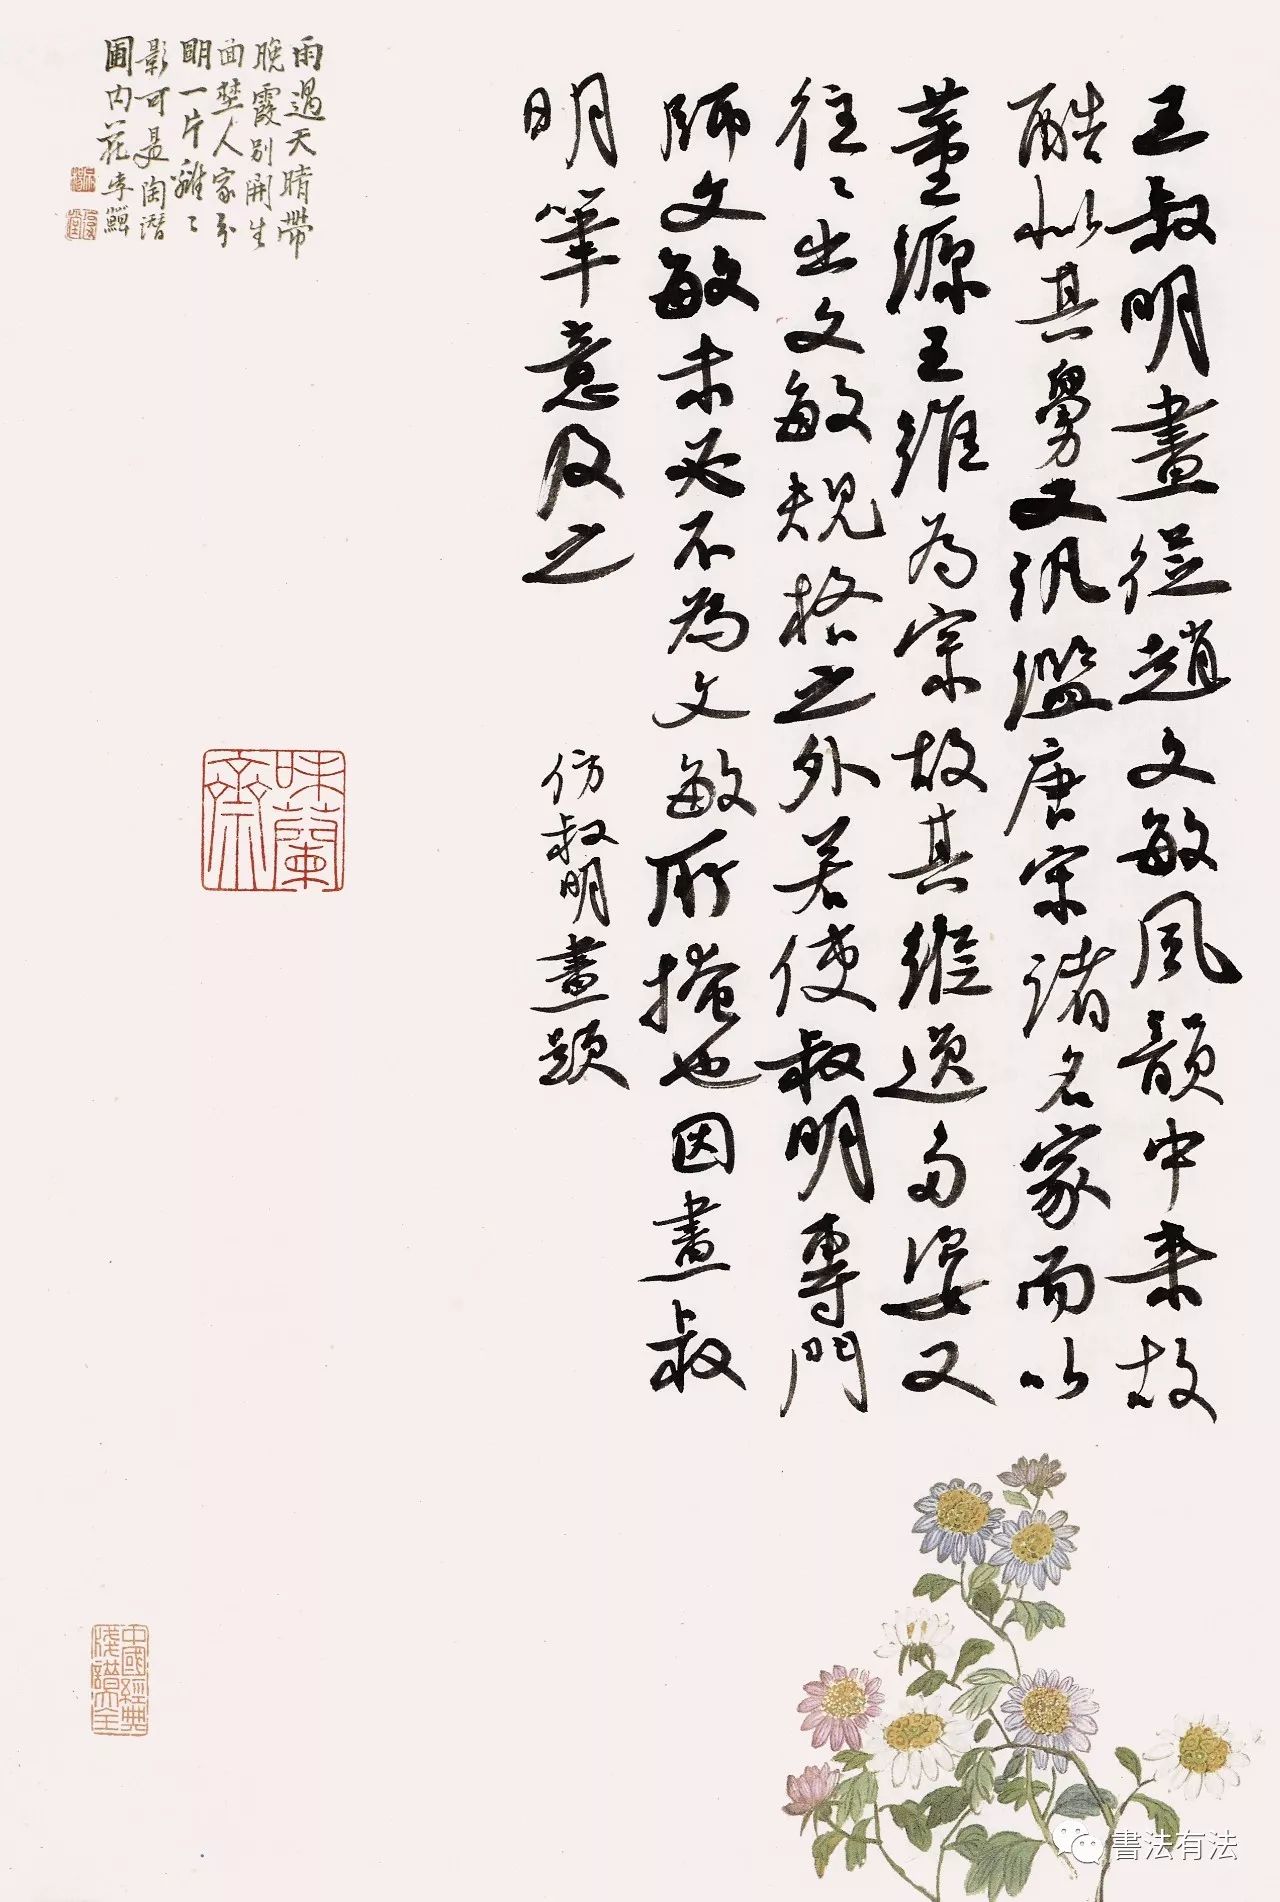 王叔明畫從趙文敏風韻中來故
酷似其舅又汎濫唐宋諸名家而以
董源王維為宗故其縱逸多姿又
往〻出文敏規格之外若使叔明專門
師文敏未必不為文敏所掩也因畫叔
明筆意及之
仿叔明畫題
雨過天晴帶
晚霞別開生
面埜人家分
明一片離〻
影可是陶潛
圃內花李鱓
味蘭齋
中國經典
箋譜大全
書法有法